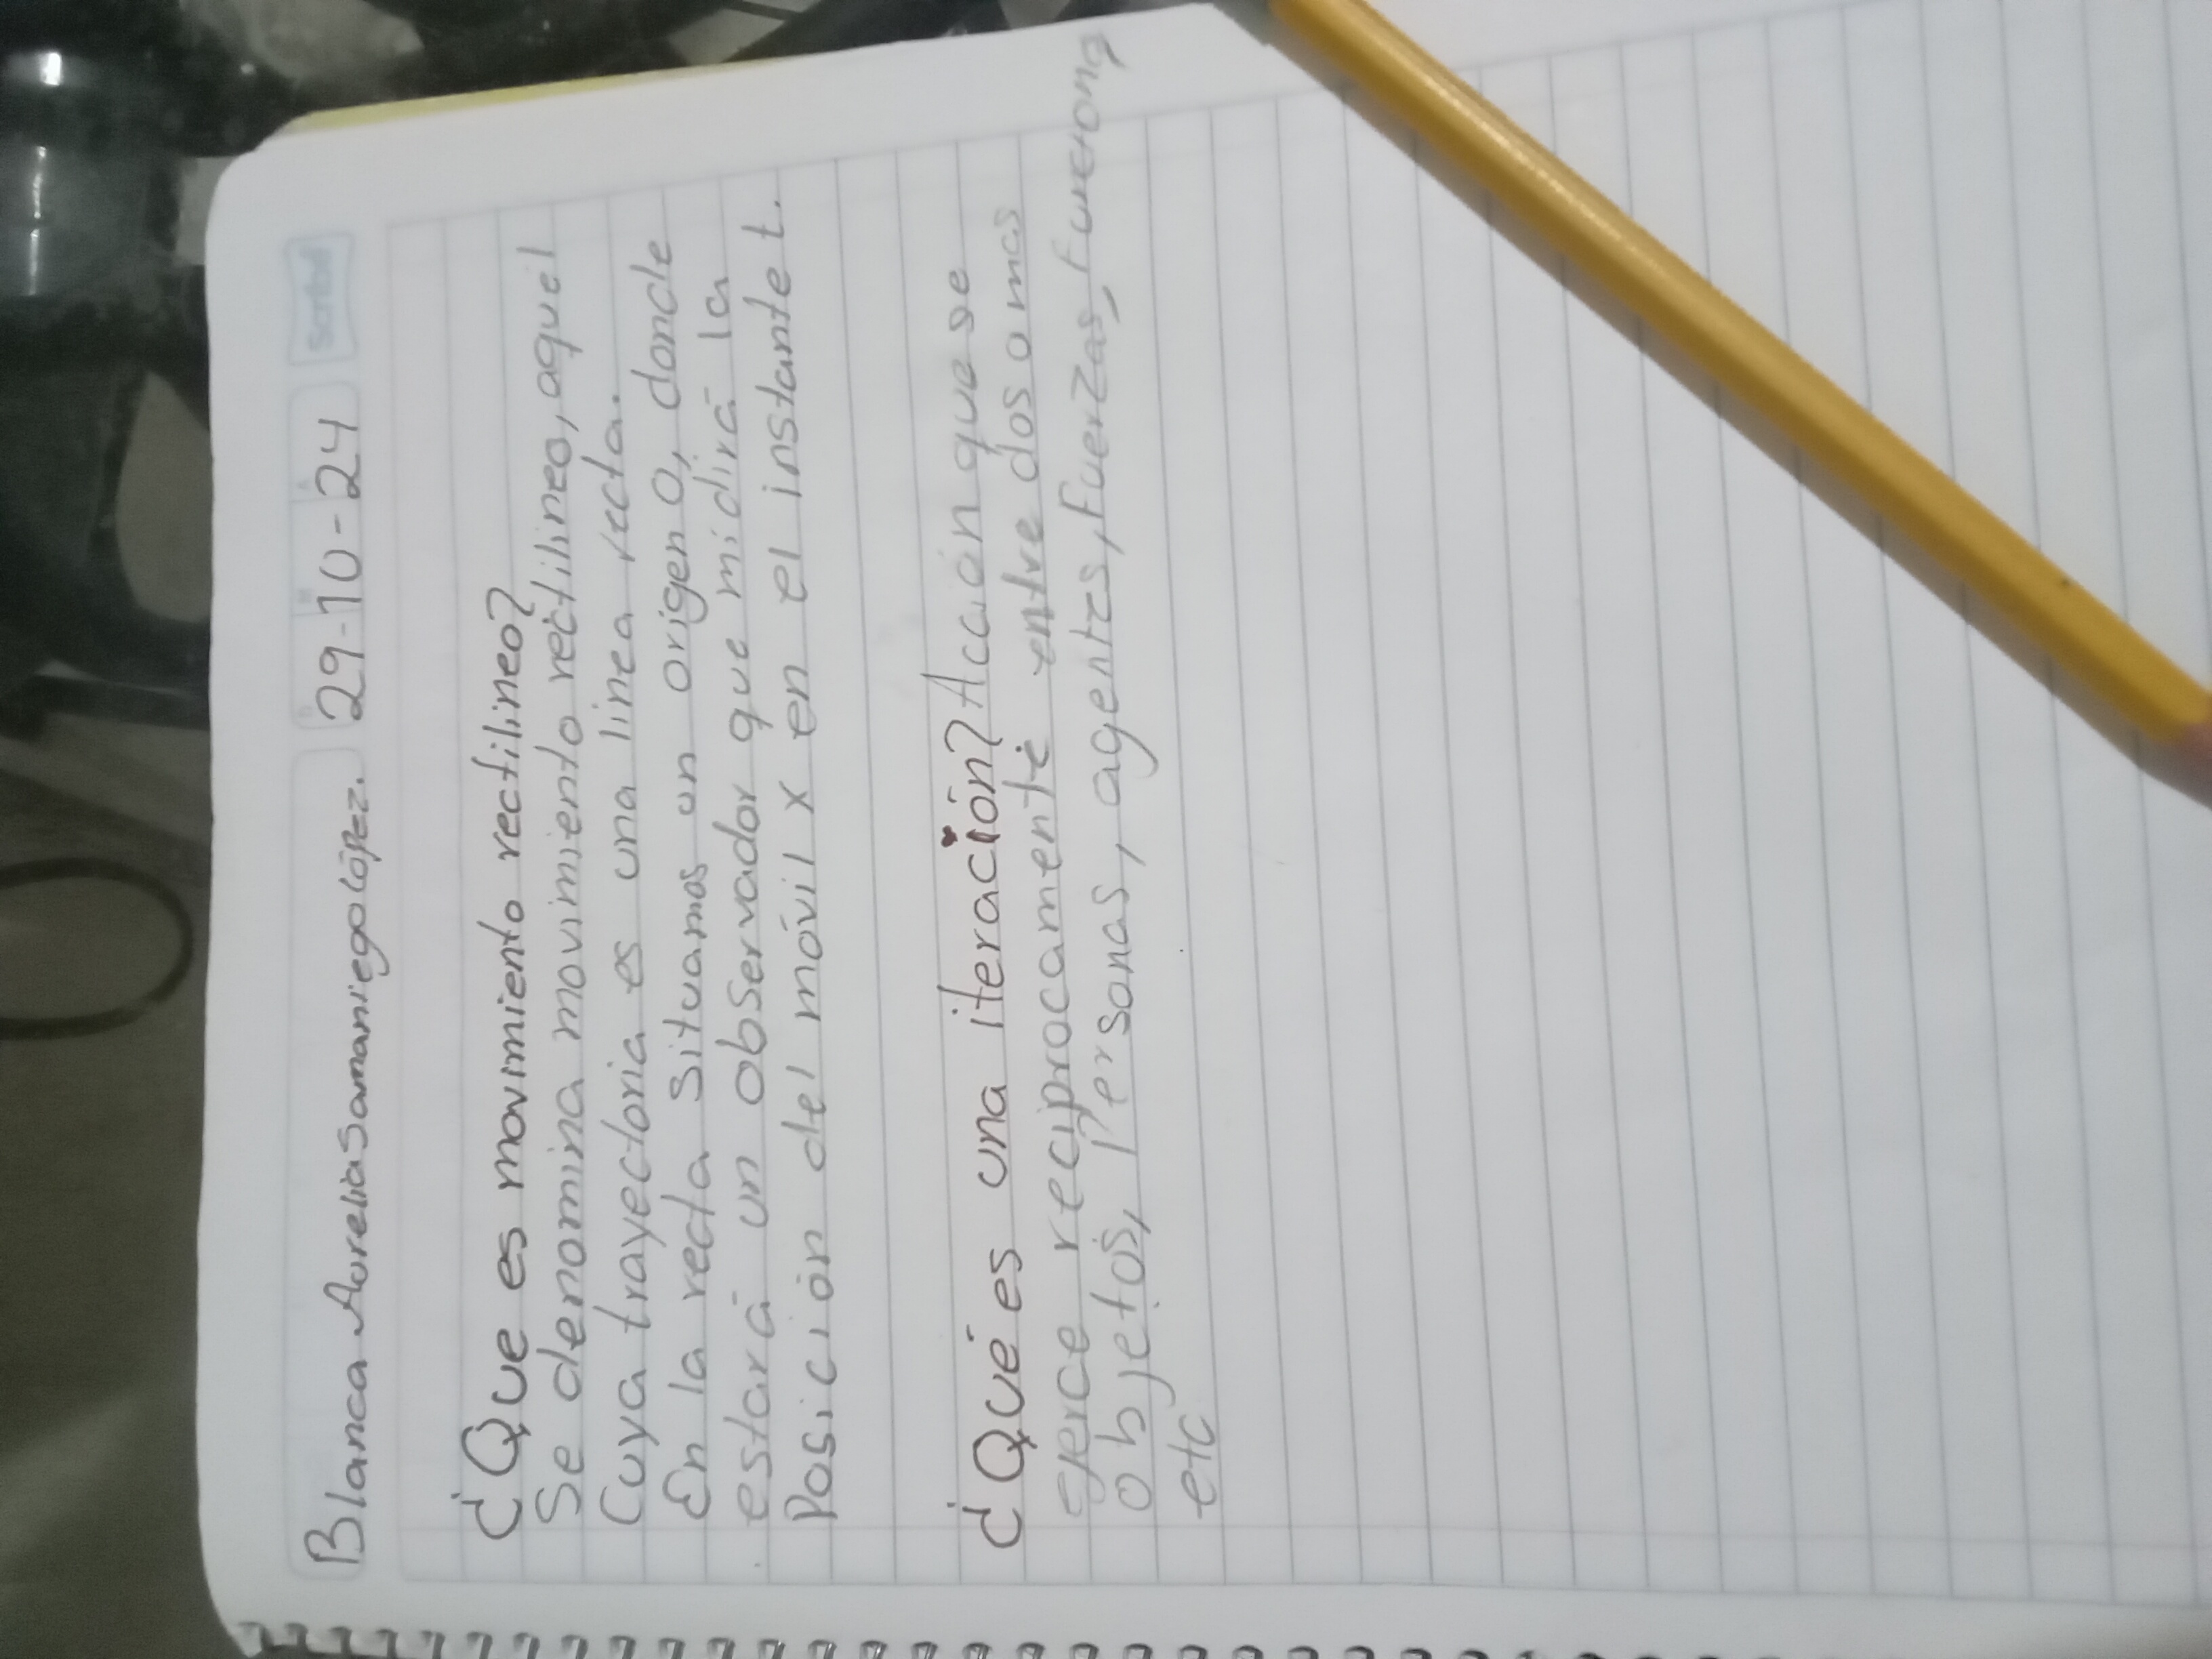 Blanca Aurelia Samaniego López. 29-10-24 Scribe
¿Que es movimiento rectilineo?
Se denomina movimiento rectilineo, aquel
Cuya trayectoria es una linea recta.
En la recta situamos un origen O, donde
estará un observador que midirá la
Posición del móvil x en el instante t.
¿Qué es una iteración? Acción que se
ejerce reciprocamente entre dos o mas
objetos, Personas, agentes, fuerzas,
etc